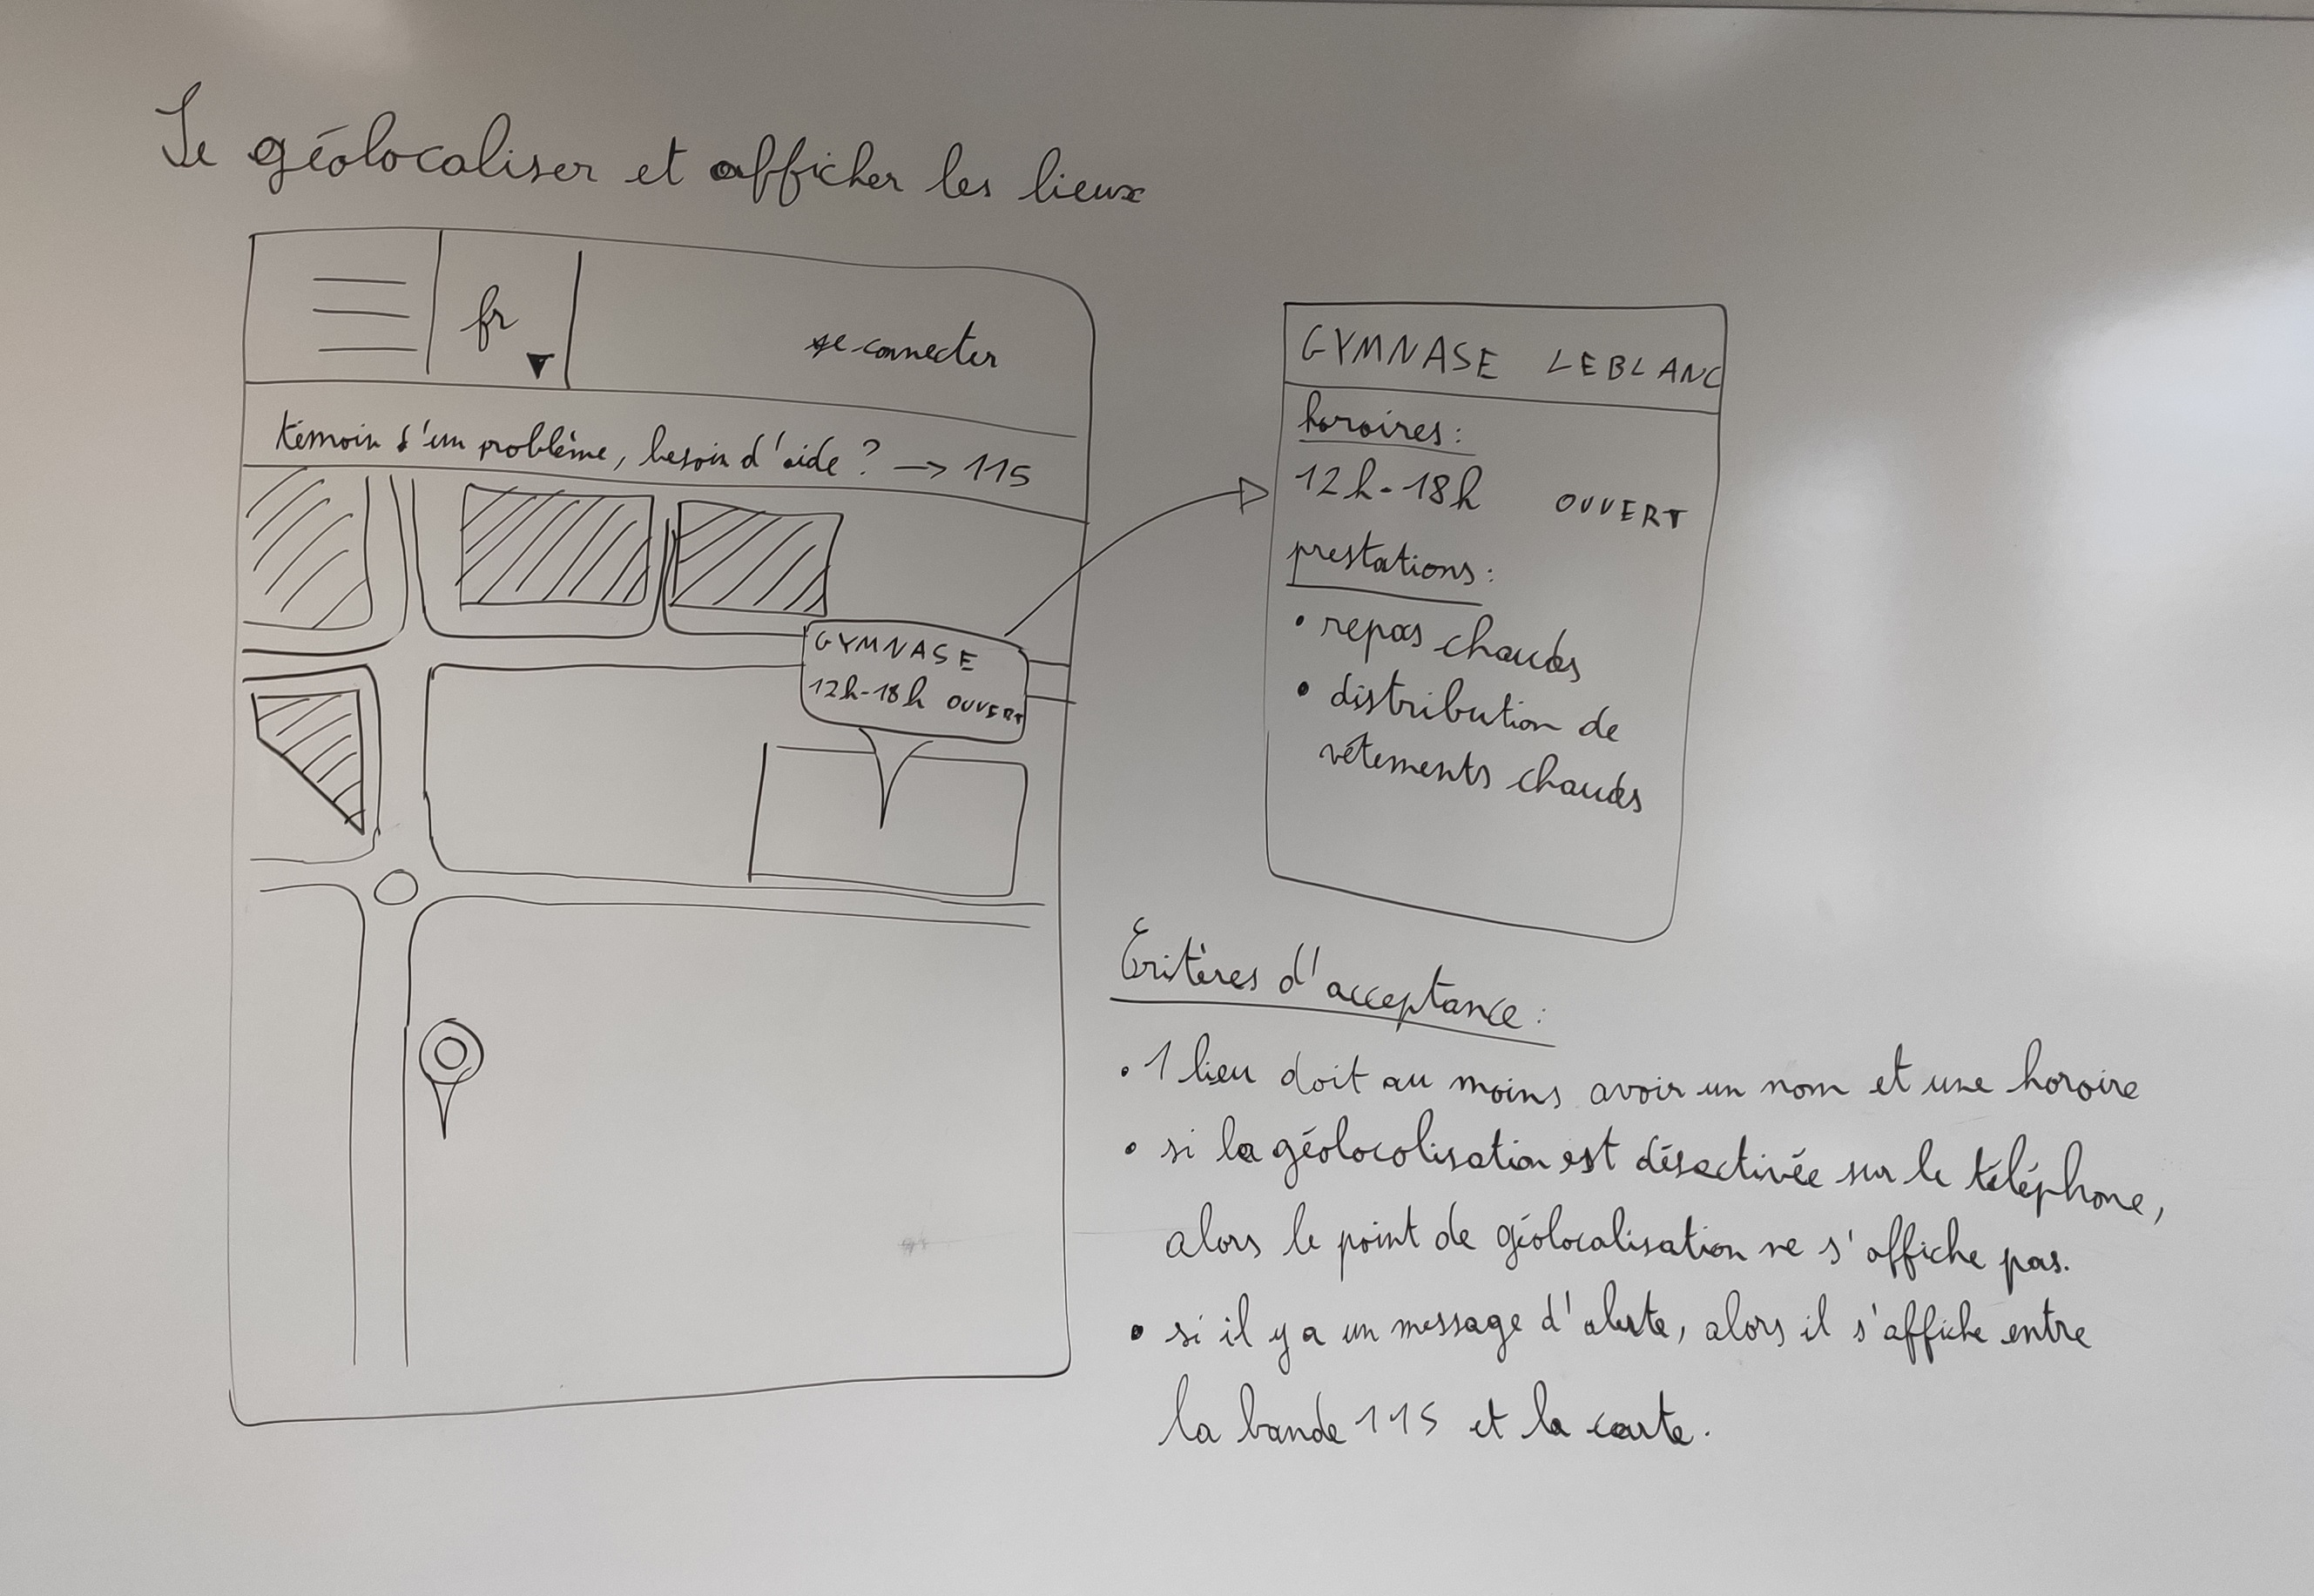 Se géolocaliser et afficher les lieux
fr
se connecter
témoin d'un problème, besoin d'aide ? → 115
GYMNASE
12h-18h OUVERT
GYMNASE LEBLANC
horaires :
12h-18h OUVERT
prestations :
• repas chauds
• distribution de
vêtements chauds
Critères d'acceptance :
• 1 lieu doit au moins avoir un nom et une horaire
• si la géolocalisation est désactivée sur le téléphone,
alors le point de géolocalisation ne s'affiche pas.
• si il y a un message d'alerte, alors il s'affiche entre
la bande 115 et la carte.